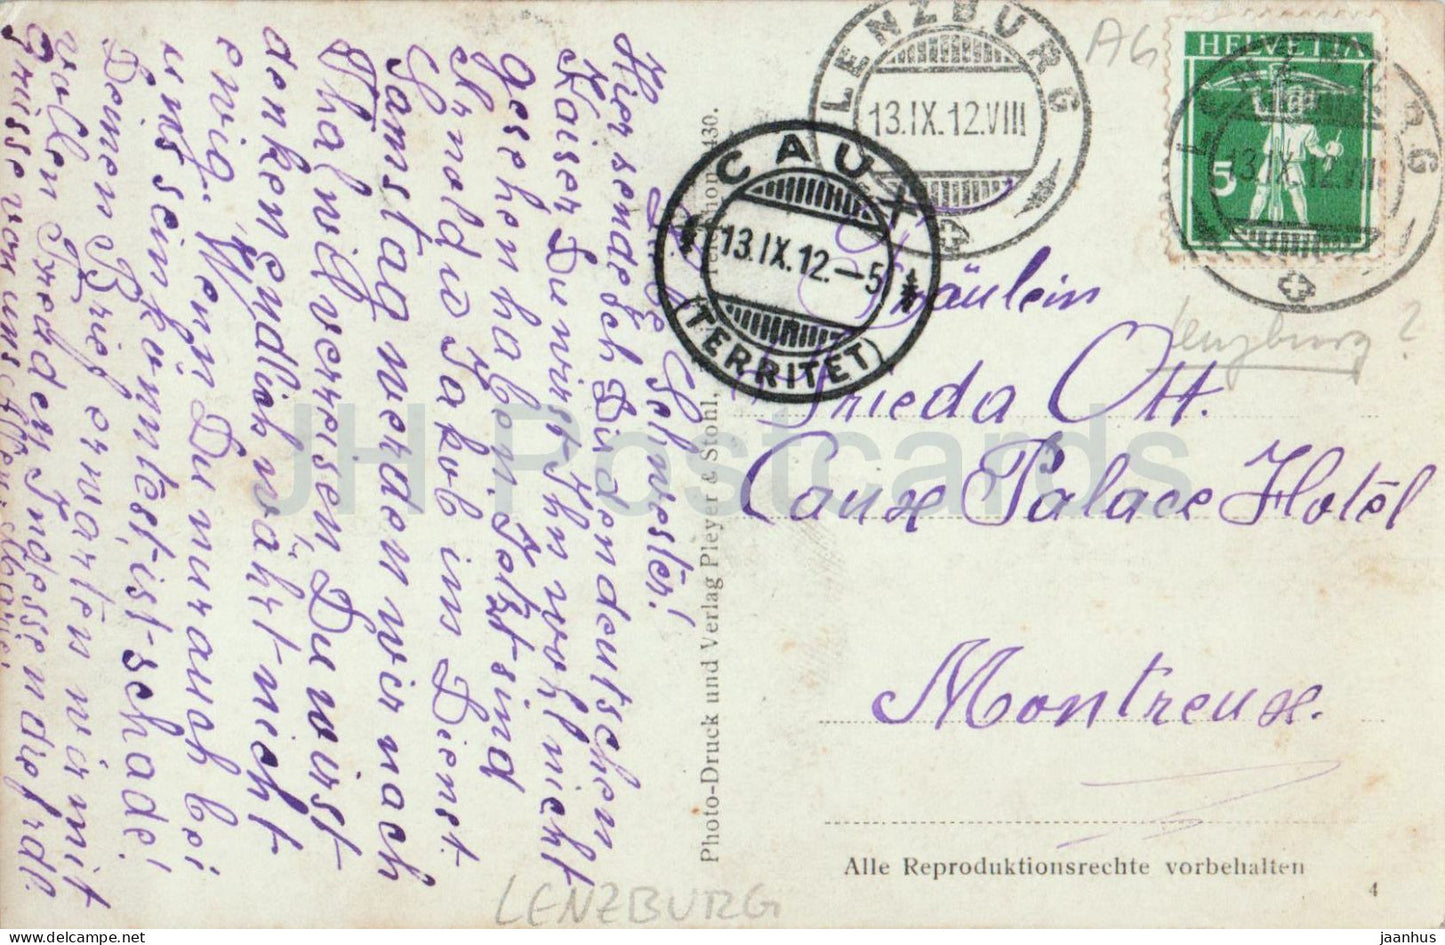 L. E. Schwester!
Hier sende ich Dir den deutschen
Kaiser Du wirst Ihn wohl nicht
gesehen haben. Jetzt sind
Arnold u Jakob im Dienst.
Samstag werden wir nach
Thalwil verreisen, Du wirst
denken „endlich währt nicht
ewig." Wenn Du nur auch bei
uns sein könntest ist schade!
Deinen Brief erwarten wir mit
vollen Freuden Indessen d. frdl.
Grüsse von uns Allen
LENZBURG
Photo-Druck und Verlag Pleyer & Stohl,
430.
LENZBURG
13.IX.12.VIII
CAUX
13.IX.12.–5
(TERRITET)
AG
HELVETIA
5
LENZBURG
13.IX.12.VIII
Lenzburg?
Fräulein
Frieda Ott.
Caux Palace Hotêl
Montreux.
Alle Reproduktionsrechte vorbehalten
4
JH Postcards
www.delcampe.net
jaanhus